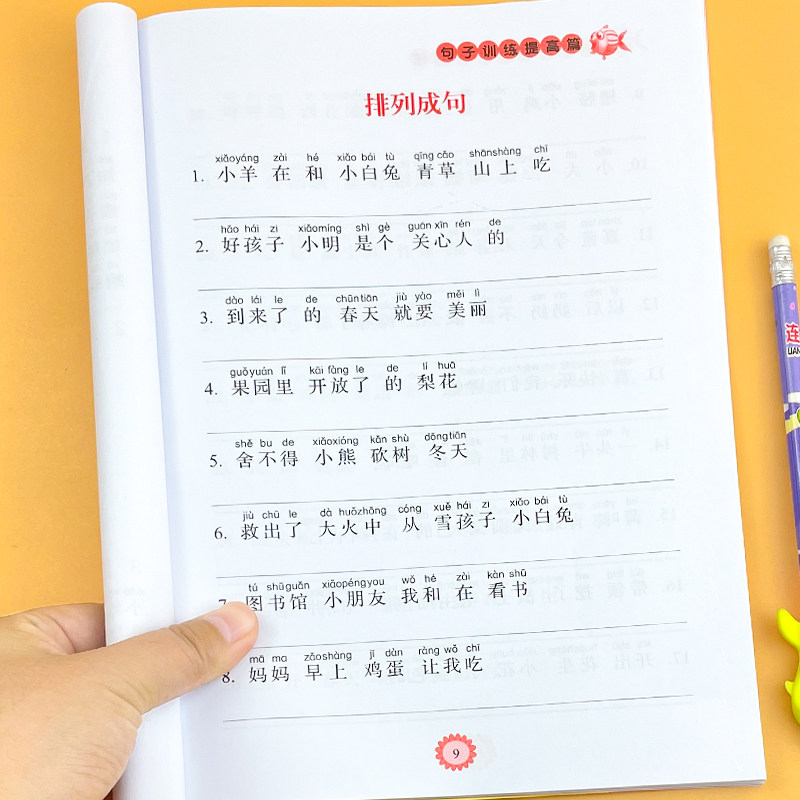 句子训练提高篇
排列成句
xiǎoyáng zài hé xiǎo bái tù qīng cǎo shānshàng chī
1. 小羊 在 和 小白兔 青草 山上 吃
hǎo hái zi xiǎomíng shì gè guān xīn rén de
2. 好孩子 小明 是个 关心人 的
dào lái le de chūntiān jiù yào měi lì
3. 到来了 的 春天 就要 美丽
guǒyuán lǐ kāi fàng le de lí huā
4. 果园里 开放了 的 梨花
shě bu de xiǎoxióng kǎn shù dōngtiān
5. 舍不得 小熊 砍树 冬天
jiù chū le dà huǒzhōng cóng xuě hái zi xiǎo bái tù
6. 救出了 大火中 从 雪孩子 小白兔
tú shūguǎn xiǎopéngyou wǒ hé zài kàn shū
7. 图书馆 小朋友 我和 在 看书
mā ma zǎoshàng jī dàn ràng wǒ chī
8. 妈妈 早上 鸡蛋 让我吃
9
连
LIAN